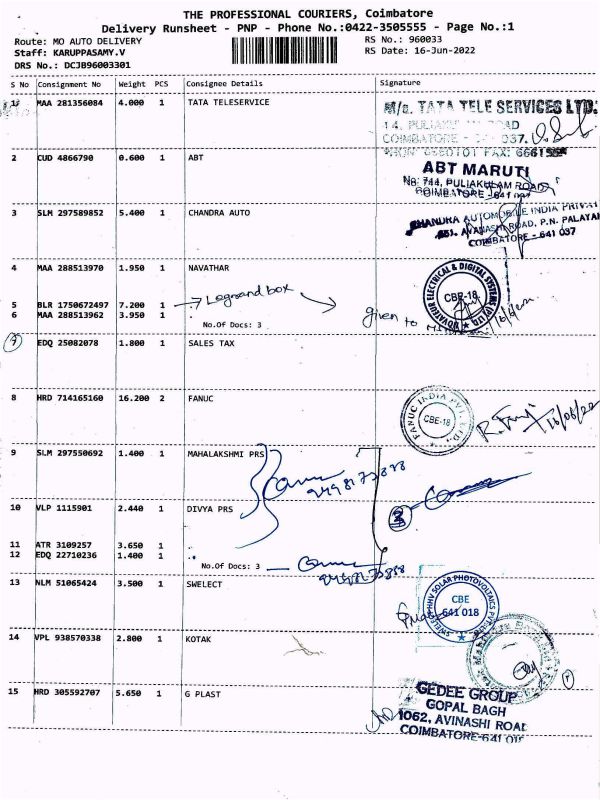 THE PROFESSIONAL COURIERS, Coimbatore
Delivery Runsheet - PNP - Phone No.:0422-3505555 - Page No.:1
Route: MO AUTO DELIVERY
RS No.: 960033
Staff: KARUPPASAMY.V
RS Date: 16-Jun-2022
DRS No.: DCJB96003301
S No Consignment No Weight PCS Consignee Details Signature
1 MAA 281356084 4.000 1 TATA TELESERVICE
M/s. TATA TELE SERVICES LTD.
ROAD
COIMBATORE - 037.
FAX:
2 CUD 4866790 0.600 1 ABT
ABT MARUTI
No: 744, PULIAKULAM ROAD
COIMBATORE - 641
3 SLM 297589852 5.400 1 CHANDRA AUTO
CHANDRA AUTOMOBILE INDIA PRIVAT
AVANASHI ROAD, P.N. PALAYAM
COIMBATORE - 641 037
4 MAA 288513970 1.950 1 NAVATHAR
NOVATEUR ELECTRICAL & DIGITAL SYSTEMS (P) LTD
CBE-18
5 BLR 1750672497 7.200 1 Legrand box
6 MAA 288513962 3.950 1 .
No.Of Docs: 3
given to
7
EDQ 25082078 1.800 1 SALES TAX
8 HRD 714165160 16.200 2 FANUC
FANUC INDIA PVT. LTD.,
CBE-18
16/06/22
9 SLM 297550692 1.400 1 MAHALAKSHMI PRS
10 VLP 1115901 2.440 1 DIVYA PRS
11 ATR 3109257 3.650 1 .
12 EDQ 22710236 1.400 1 ..
No.Of Docs: 3
13 NLM 51065424 3.500 1 SWELECT
SWELECT HHV SOLAR PHOTOVOLTAICS
CBE
641 018
14 VPL 938570338 2.800 1 KOTAK
15 HRD 305592707 5.650 1 G PLAST
GEDEE GROUP
GOPAL BAGH
1062, AVINASHI ROAD
COIMBATORE-641 018